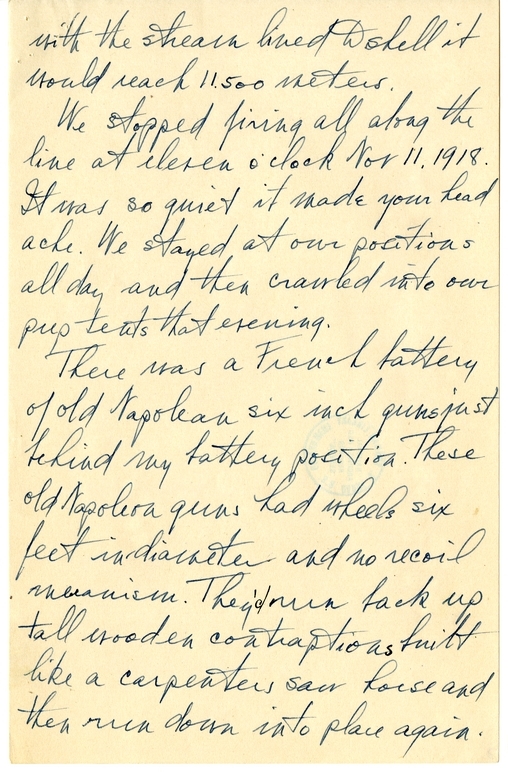 with the stream lined D shell it
would reach 11.500 meters.
We stopped firing all along the
line at eleven o'clock Nov 11, 1918.
It was so quiet it made your head
ache. We stayed at our positions
all day and then crawled into our
pup tents that evening.
There was a French battery
of old Napolean six inch guns just
behind my battery position. These
old Napoleon guns had wheels six
feet in diameter and no recoil
mecanism. They'd run back up
tall wooden contraptions built
like a carpenters saw horse and
then run down into place again.